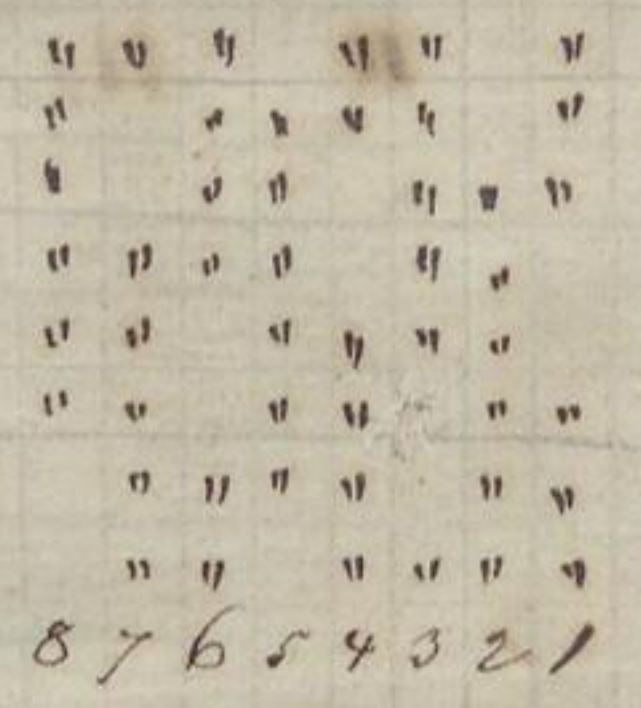 " " " " " "
" " " " " "
" " " " " "
" " " " " "
" " " " " "
" " " " " "
" " " " " "
" " " " " "
8 7 6 5 4 3 2 1